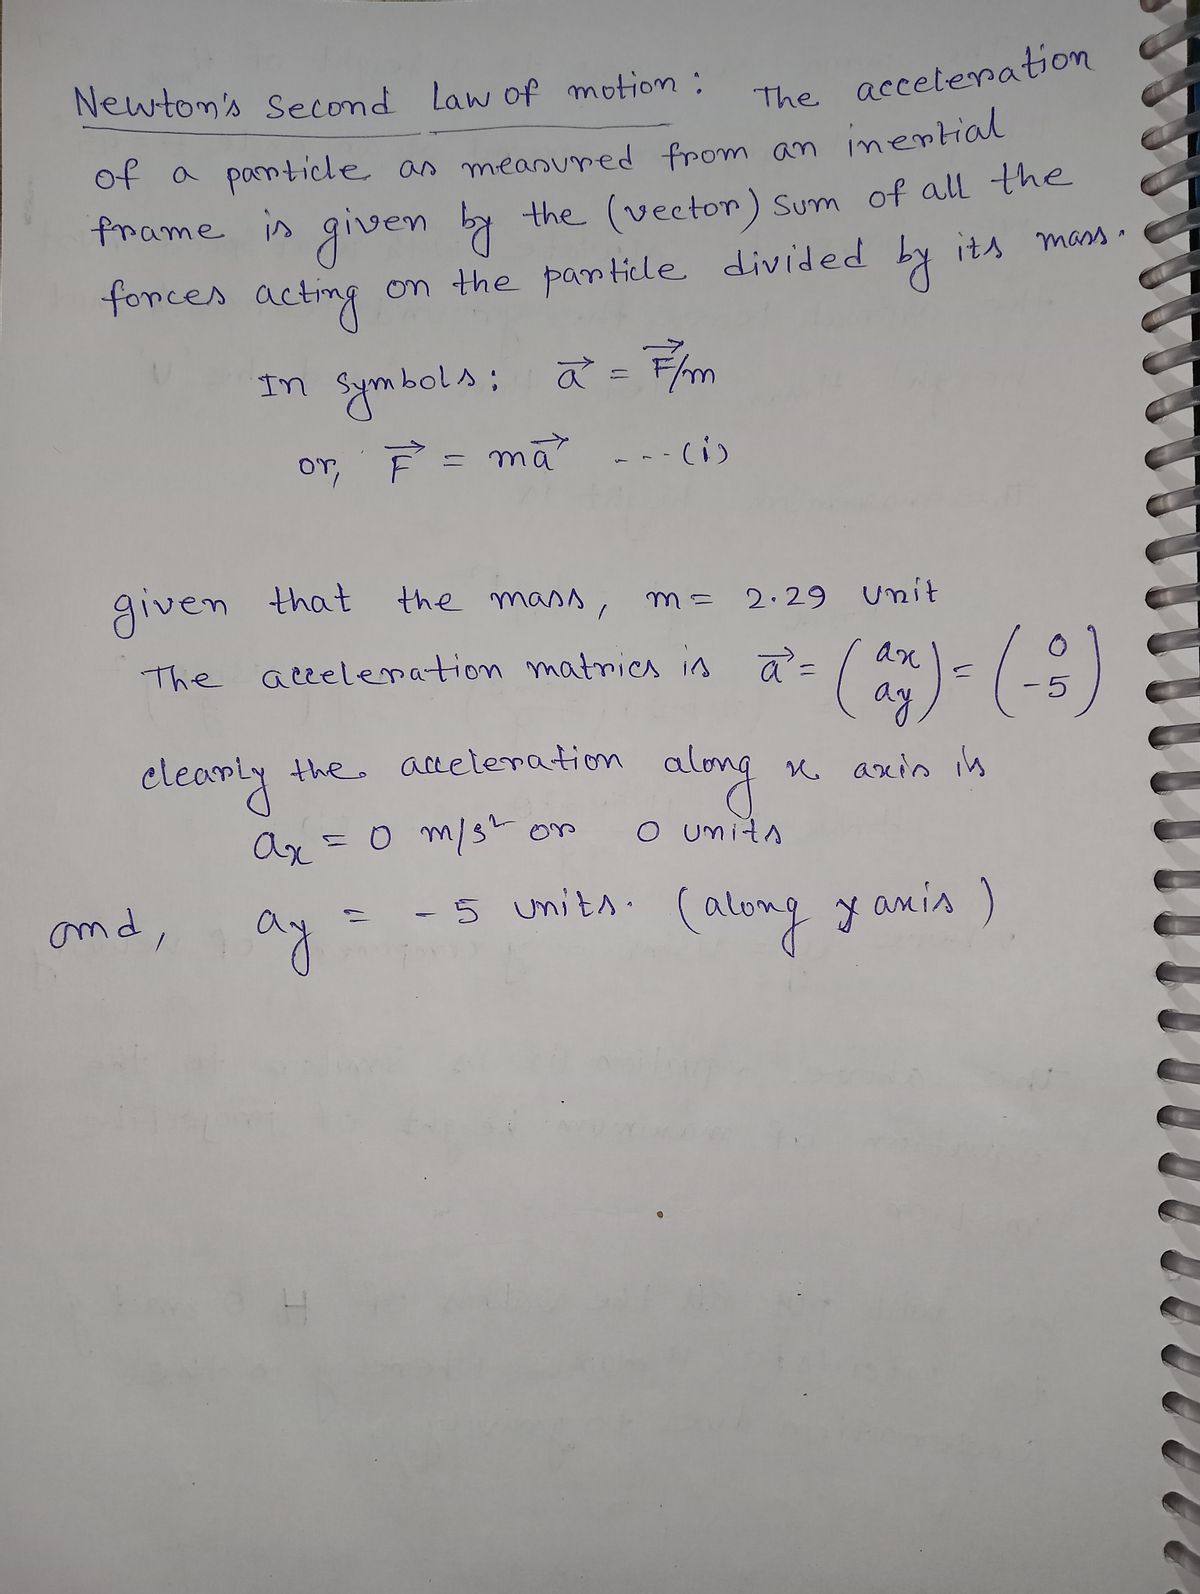 Newton's Second Law of motion: The acceleration
of a particle as measured from an inertial
frame is given by the (vector) sum of all the
forces acting on the particle divided by its mass.
In symbols; a⃗ = F⃗/m
or, F⃗ = ma⃗ ---(i)
given that the mass, m = 2.29 unit
The acceleration matrics is a⃗ = (ax ay) = (0 -5)
clearly the acceleration along x axis is
ax = 0 m/s² or 0 units
and, ay = -5 units. (along y axis)